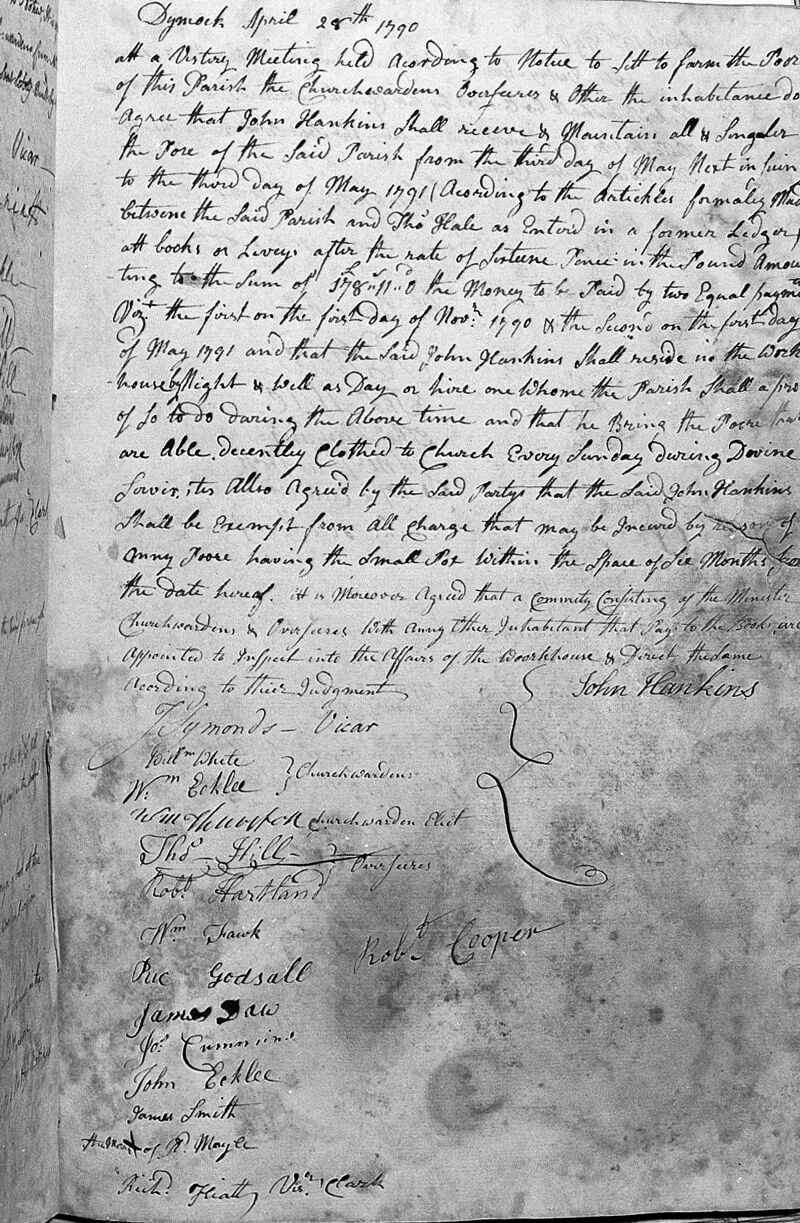 Dymock April 28th 1790
att a Vistrey Meeting held Acording to Notice to Sett to farm the Poore
of this Parish the Churchwardens Overseeres & Other the inhabitance do
Agree that John Hankins Shall receive & Maintain all & Singuler
the Pore of the Said Parish from the third day of May Next
to the third day of May 1791 (Acording to the Artickles formaley Mad
betwene the Said Parish and Thos Hale as Enterd in a former Ledger
att books or Leveys after the rate of Sixteene Pence in the Pound Amou
ting to the Sum of £178"11"0 the Money to be Paid by two Equal paym
Vizt the first on the first day of Novr 1790 & the Second on the first day
of May 1791 and that the Said John Hankins Shall reside in the Work
house by Night & Well as Day or hire one Whome the Parish Shall apro
of So to do during the Above time and that he Bring the Poore that
are Able Decently Clothed to Church Every Sunday during Devine
Servis, itis Allso Agree'd by the Said Partys that the Said John Hankins
Shall be Exempt from All Charge that may be Incured by reason of
anny Poore having the Small Pox Within the Space of Six Months from
the date hereof. it is Moreover Agreed that a Commity Consisting of the Minister
Churchwardens & Overseeres With Anny Other Inhabitant that Pays to the Books are
Appointed to Inspect into the Affairs of the Woorkhouse & Direct the Same
Acording to their Judgment
John Hankins
J Symonds - Vicar
Willm White
Wm Ecklee } Churchwardens
Wm Churchwarden Elect
Thos Hill
Overseeres
Robt Hartland
Wm Fawk
Robt Cooper
Ric Godsall
James Daw
Jos Cummins
John Ecklee
James Smith
the Mark X of Rd Mayle
Richd Hiatt Vesry Clark